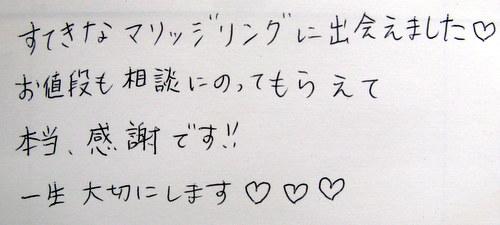 すてきな マリッジリングに出会えました♡
お値段も 相談にのってもらえて
本当、感謝です!!
一生 大切にします♡ ♡ ♡